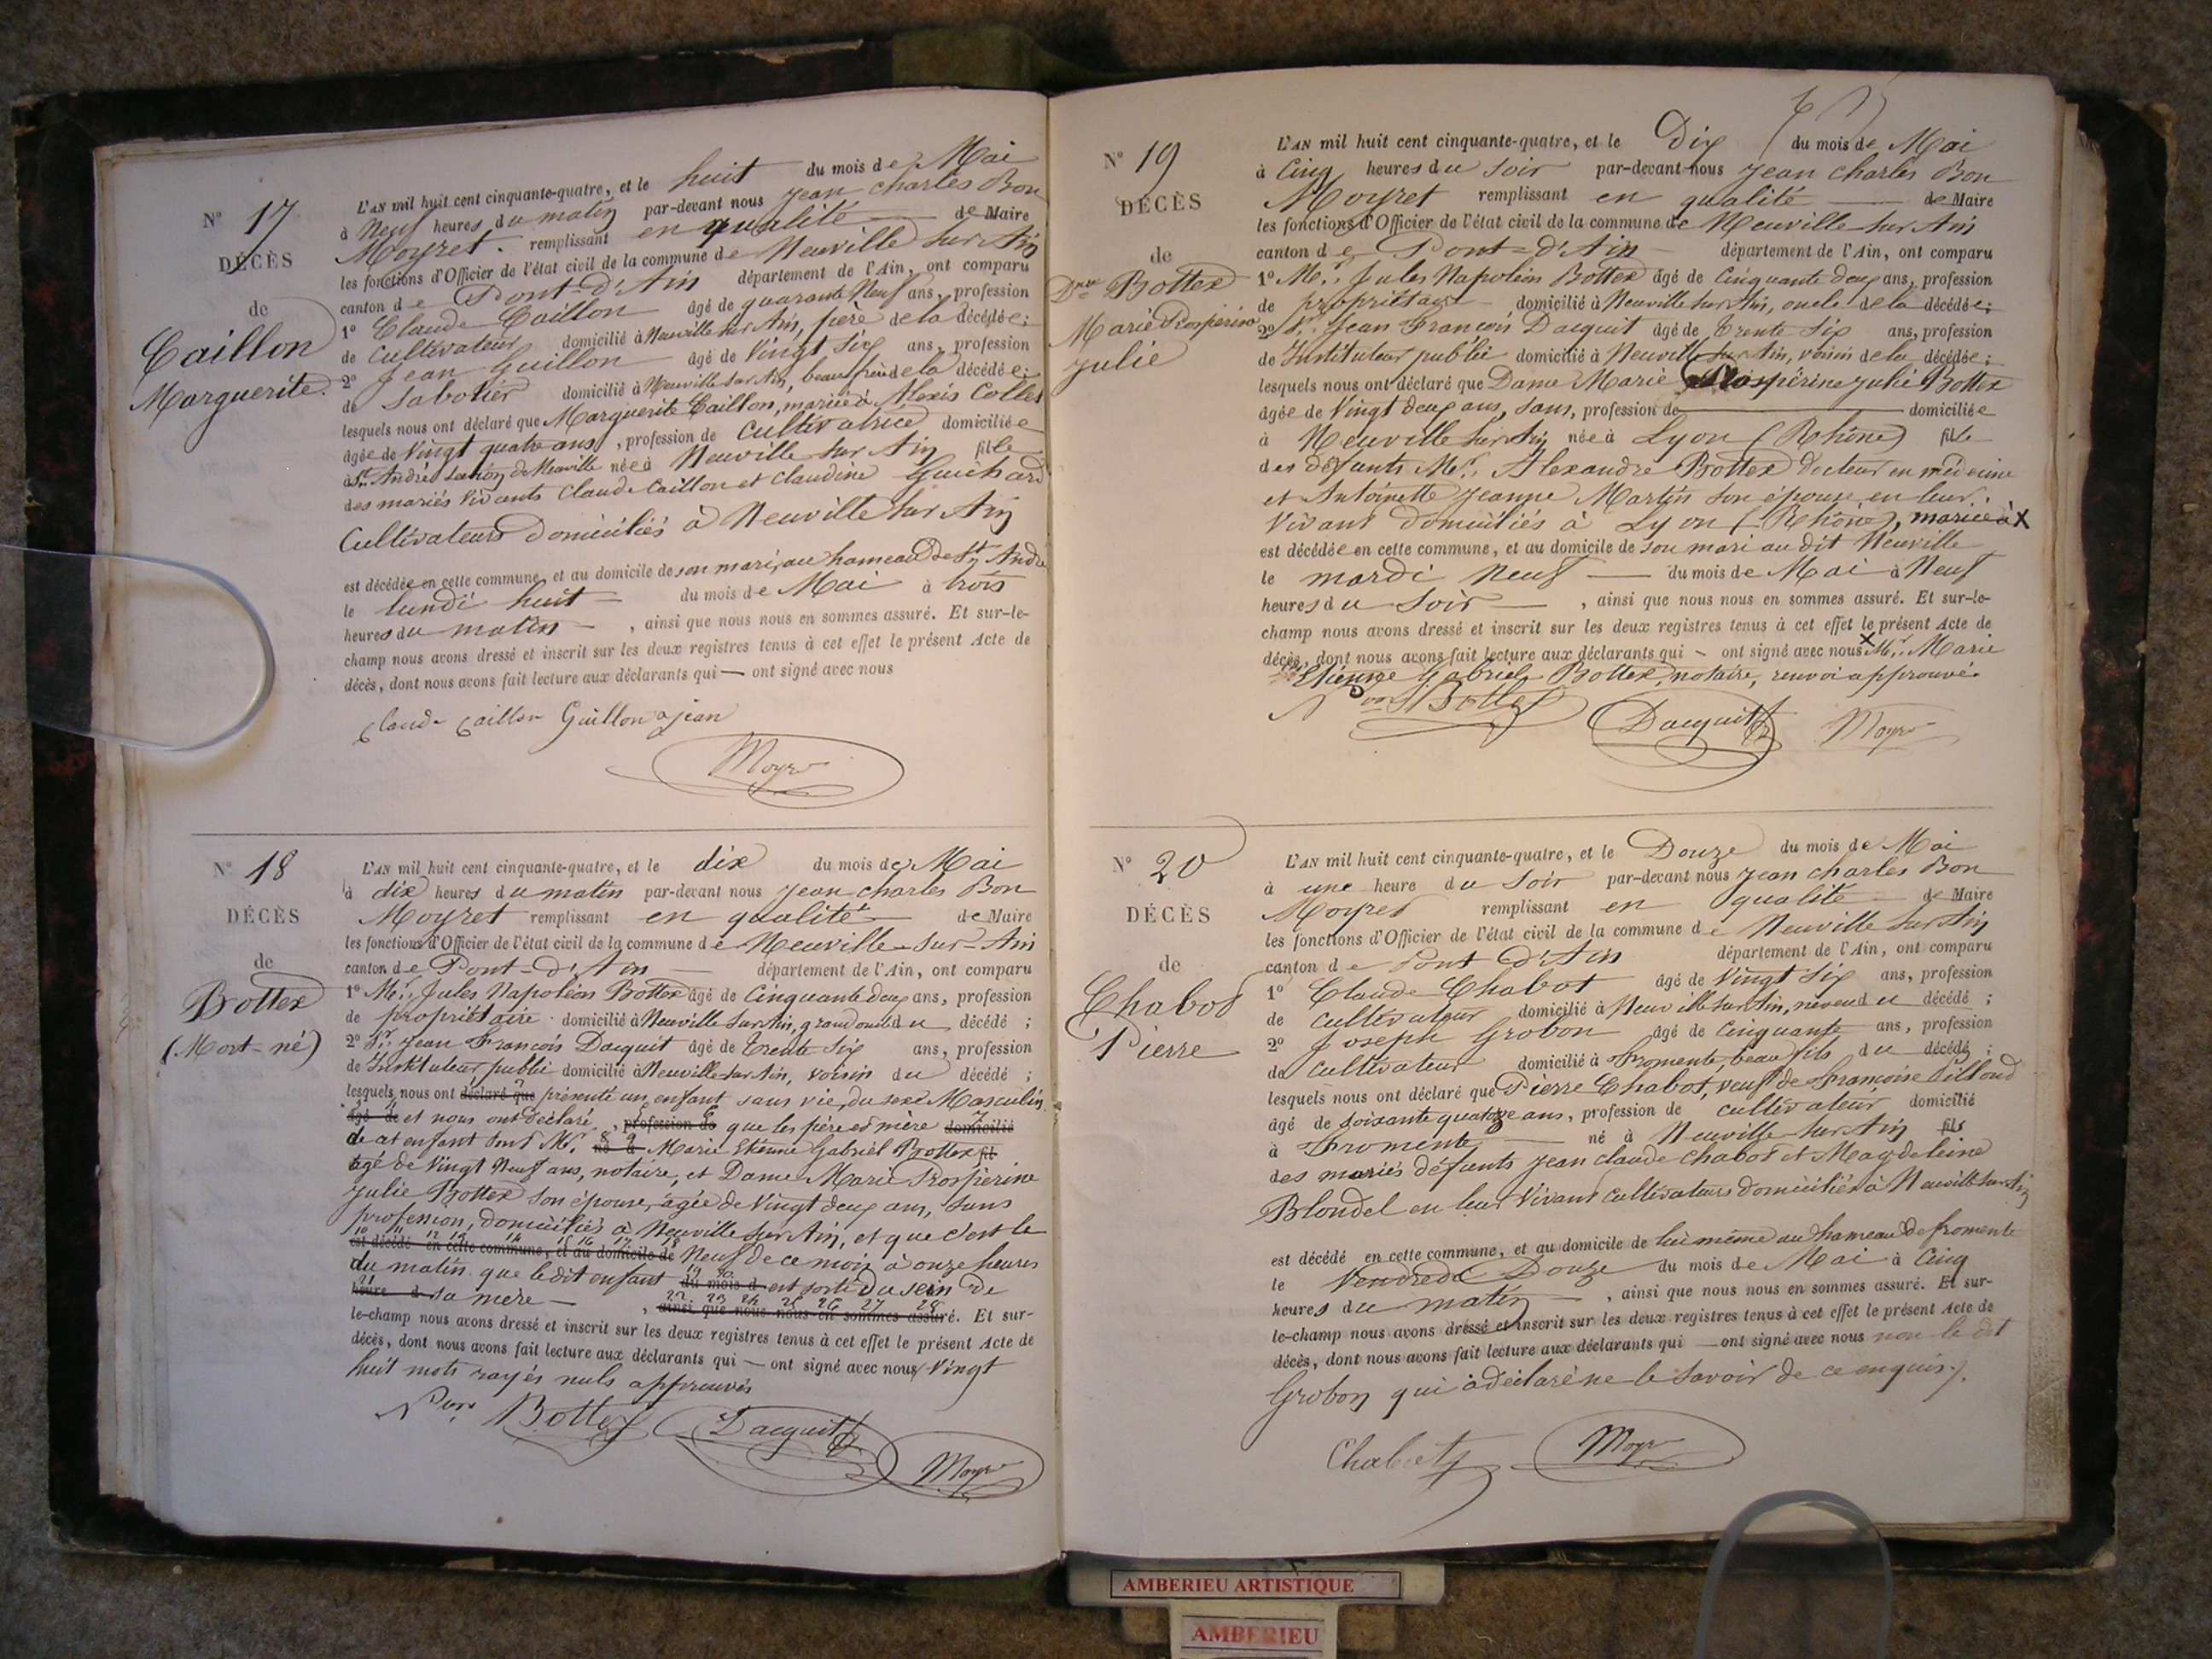 N° 17
DÉCÈS
de
Caillon
Marguerite.
L'AN mil huit cent cinquante-quatre, et le huit du mois de Mai
à Neuf heures du matin par-devant nous Jean Charles Bon
Moyret. remplissant en qualité de Maire
les fonctions d'Officier de l'état civil de la commune de Neuville sur Ain
canton de Pont-d'Ain département de l'Ain, ont comparu
1° Claude Caillon âgé de quarante Neuf ans, profession
de Cultivateur domicilié à Neuville sur Ain, père de la décédée;
2° Jean Guillon âgé de Vingt Six ans, profession
de Sabotier domicilié à Neuville sur Ain, beau frère de la décédée;
lesquels nous ont déclaré que Marguerite Caillon, mariée à Alexis Collet
âgée de Vingt quatre ans, profession de Cultivatrice domiciliée
à St. André section de Neuville née à Neuville sur Ain fille
des mariés Vivants Claude Caillon et Claudine Guichard
Cultivateurs domiciliés à Neuville sur Ain
est décédée en cette commune, et au domicile de son mari, au hameau de St. André
le lundi huit du mois de Mai à trois
heures du matin, ainsi que nous nous en sommes assuré. Et sur-le-
champ nous avons dressé et inscrit sur les deux registres tenus à cet effet le présent Acte de
décès, dont nous avons fait lecture aux déclarants qui — ont signé avec nous
Claude Caillon Guillon jean
Moyret
N° 18
DÉCÈS
de
Bottex
(Mort-né)
L'AN mil huit cent cinquante-quatre, et le dix du mois de Mai
à dix heures du matin par-devant nous Jean Charles Bon
Moyret remplissant en qualité de Maire
les fonctions d'Officier de l'état civil de la commune de Neuville-sur-Ain
canton de Pont-d'Ain département de l'Ain, ont comparu
1° Mr. Jules Napoléon Bottex âgé de Cinquante deux ans, profession
de propriétaire domicilié à Neuville sur Ain, grand oncle du décédé;
2° Sr. Jean François Dacquit âgé de trente Six ans, profession
de Instituteur public domicilié à Neuville sur Ain, voisin du décédé;
lesquels nous ont déclaré que présenté un enfant sans vie, du sexe Masculin
âgé de et nous ont déclaré, profession de que les père et mère domicilié
de cet enfant sont Mr. né à Marie Etienne Gabriel Bottex fil
âgé de Vingt Neuf ans, notaire, et Dame Marie Prospérine
Julie Bottex son épouse, âgée de Vingt deux ans, sans
profession, domiciliés à Neuville sur Ain, et que c'est le
est décédé en cette commune, et au domicile de Neuf de ce mois à onze heures
du matin que le dit enfant du mois d est sorti du sein de
heure d sa mère, ainsi que nous nous en sommes assuré. Et sur-
le-champ nous avons dressé et inscrit sur les deux registres tenus à cet effet le présent Acte de
décès, dont nous avons fait lecture aux déclarants qui — ont signé avec nous Vingt
huit mots rayés nuls approuvés
Bottex Dacquit Moyret
N° 19
DÉCÈS
de
Dme Bottex
Marie Prospérine
Julie
L'AN mil huit cent cinquante-quatre, et le Dix du mois de Mai
à Cinq heures du soir par-devant nous Jean Charles Bon
Moyret remplissant en qualité de Maire
les fonctions d'Officier de l'état civil de la commune de Neuville sur Ain
canton de Pont-d'Ain département de l'Ain, ont comparu
1° Mr. Jules Napoléon Bottex âgé de Cinquante deux ans, profession
de propriétaire domicilié à Neuville sur Ain, oncle de la décédée;
2° Sr. Jean François Dacquit âgé de trente Six ans, profession
de Instituteur public domicilié à Neuville sur Ain, voisin de la décédée;
lesquels nous ont déclaré que Dame Marie Prospérine Julie Bottex
âgée de Vingt deux ans, sans, profession de domiciliée
à Neuville sur Ain née à Lyon (Rhône) fille
des défunts Mr. Alexandre Bottex docteur en médecine
et Antoinette Jeanne Martin son épouse, en leur
Vivant domiciliés à Lyon (Rhône), mariée à X
est décédée en cette commune, et au domicile de son mari au dit Neuville
le mardi Neuf du mois de Mai à Neuf
heures du soir, ainsi que nous nous en sommes assuré. Et sur-le-
champ nous avons dressé et inscrit sur les deux registres tenus à cet effet le présent Acte de
décès, dont nous avons fait lecture aux déclarants qui — ont signé avec nous X Mr. Marie
Etienne Gabriel Bottex, notaire, renvoi approuvé.
Bottex Dacquit Moyret
N° 20
DÉCÈS
de
Chabot
Pierre
L'AN mil huit cent cinquante-quatre, et le Douze du mois de Mai
à une heure du soir par-devant nous Jean Charles Bon
Moyret remplissant en qualité de Maire
les fonctions d'Officier de l'état civil de la commune de Neuville sur Ain
canton de Pont d'Ain département de l'Ain, ont comparu
1° Claude Chabot âgé de Vingt Six ans, profession
de Cultivateur domicilié à Neuville sur Ain, neveu du décédé;
2° Joseph Grobon âgé de Cinquante ans, profession
de Cultivateur domicilié à Fromente, beau fils du décédé;
lesquels nous ont déclaré que Pierre Chabot, veuf de Françoise Pilloud
âgé de soixante quatorze ans, profession de cultivateur domicilié
à Fromente né à Neuville sur Ain fils
des mariés défunts Jean Claude Chabot et Magdeleine
Blondel en leur Vivant Cultivateurs domiciliés à Neuville sur Ain
est décédé en cette commune, et au domicile de lui même au hameau de fromente
le Vendredi Douze du mois de Mai à Cinq
heures du matin, ainsi que nous nous en sommes assuré. Et sur-
le-champ nous avons dressé et inscrit sur les deux registres tenus à cet effet le présent Acte de
décès, dont nous avons fait lecture aux déclarants qui — ont signé avec nous non le dit
Grobon qui a déclaré ne le savoir de ce enquis.
Chabot Moyret
AMBERIEU ARTISTIQUE
AMBERIEU